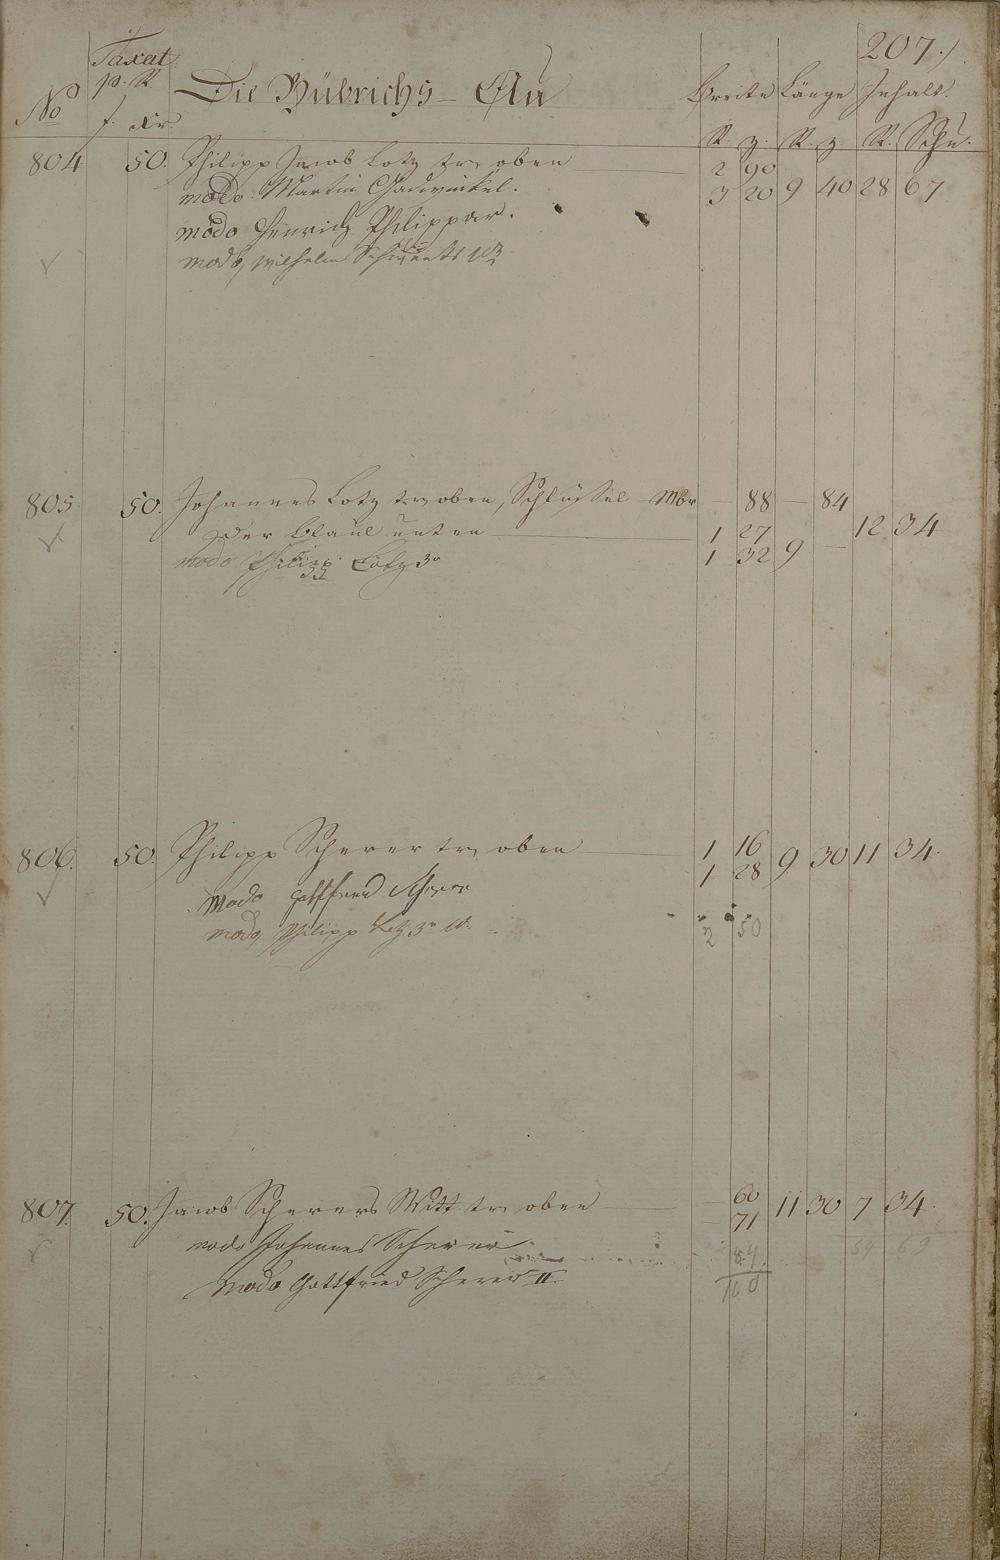 207.)
Taxat
p. R.
No f. Xr.
Die Bübrichs-Au
Breite Länge Inhalt.
R. z. R. z. R. Schu.
804 50. Philipp Jacob Lotz oben 2 90
modo Martin 3 20 9 40 28 67
modo Henrich Philippar.
modo Wilhelm
805 50. Johannes Lotz oben, Schlüssel Mbr — 88 — 84
der unten 1 27 12 34
modo Philipp Lotz 3r 1 32 9 —
806. 50. Philipp Scherer oben 1 16 9 30 11 34.
modo Gottfried Scherer 1 28
modo Philipp Lotz 3r 2 50
807. 50. Jacob Scherers Witt oben — 60 11 30 7 34.
modo Johannes Scherer — 71
59 69
modo Gottfried Scherer II.